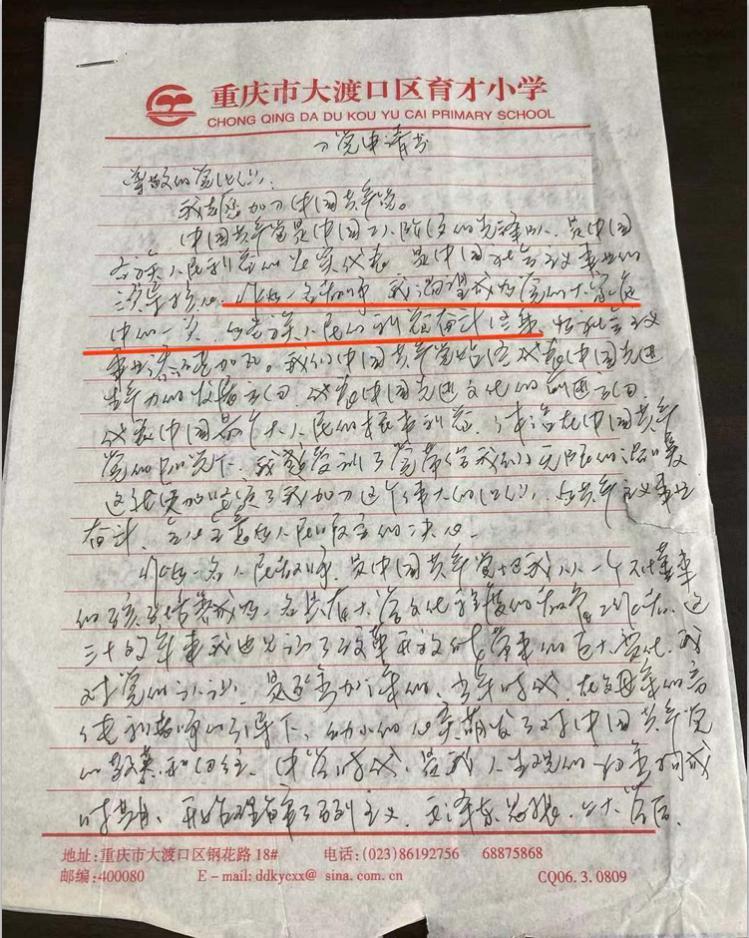 重庆市大渡口区育才小学
CHONG QING DA DU KOU YU CAI PRIMARY SCHOOL
入党申请书
尊敬的党组织：
我志愿加入中国共产党。
中国共产党是中国工人阶级的先锋队，是中国
各族人民利益的忠实代表，是中国社会主义事业的
领导核心。作为一名教师，我渴望成为党的大家庭
中的一员，为各族人民的利益奋斗终身，为社会主义
事业添砖加瓦。我们中国共产党始终代表中国先进
生产力的发展方向，代表中国先进文化的前进方向，
代表中国最广大人民的根本利益，生活在中国共产
党的阳光下，我感受到了党带给我们的无限的温暖
这就更加坚定了我加入这个伟大的组织，为共产主义事业
奋斗，全心全意为人民服务的决心。
作为一名人民教师，是中国共产党把我从一个不懂事
的孩子培养成为一名具有大学文化程度的教育工作者。这
三十的年来我也见证了改革开放时代带来的巨大变化，我
对党的认识，是逐步加深的，少年时代，在父母亲的言
传和老师的引导下，幼小的心灵萌发了对中国共产党
的敬慕和向往，中学时代，是我人生观的初步构成
时期，开始理解马列主义、毛泽东思想，上大学后，
地址：重庆市大渡口区钢花路 18# 电话：(023)86192756 68875868
邮编：400080 E－mail: ddkycxx@ sina. com. cn CQ06. 3. 0809